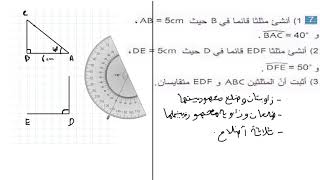 7 (1 أنشئ مثلثا قائما في B حيث AB = 5cm ،
و BAC = 40° .
2) أنشئ مثلثا EDF قائما في D حيث DE = 5cm ،
و DFE = 50° .
3) أثبت أنّ المثلثين ABC و EDF متقايسان.
- زاويتان وضلع محصور بينهما
- ضلعان وزاوية محصورة بينهما
- ثلاثة أضلاع.
C
B
A
E
D